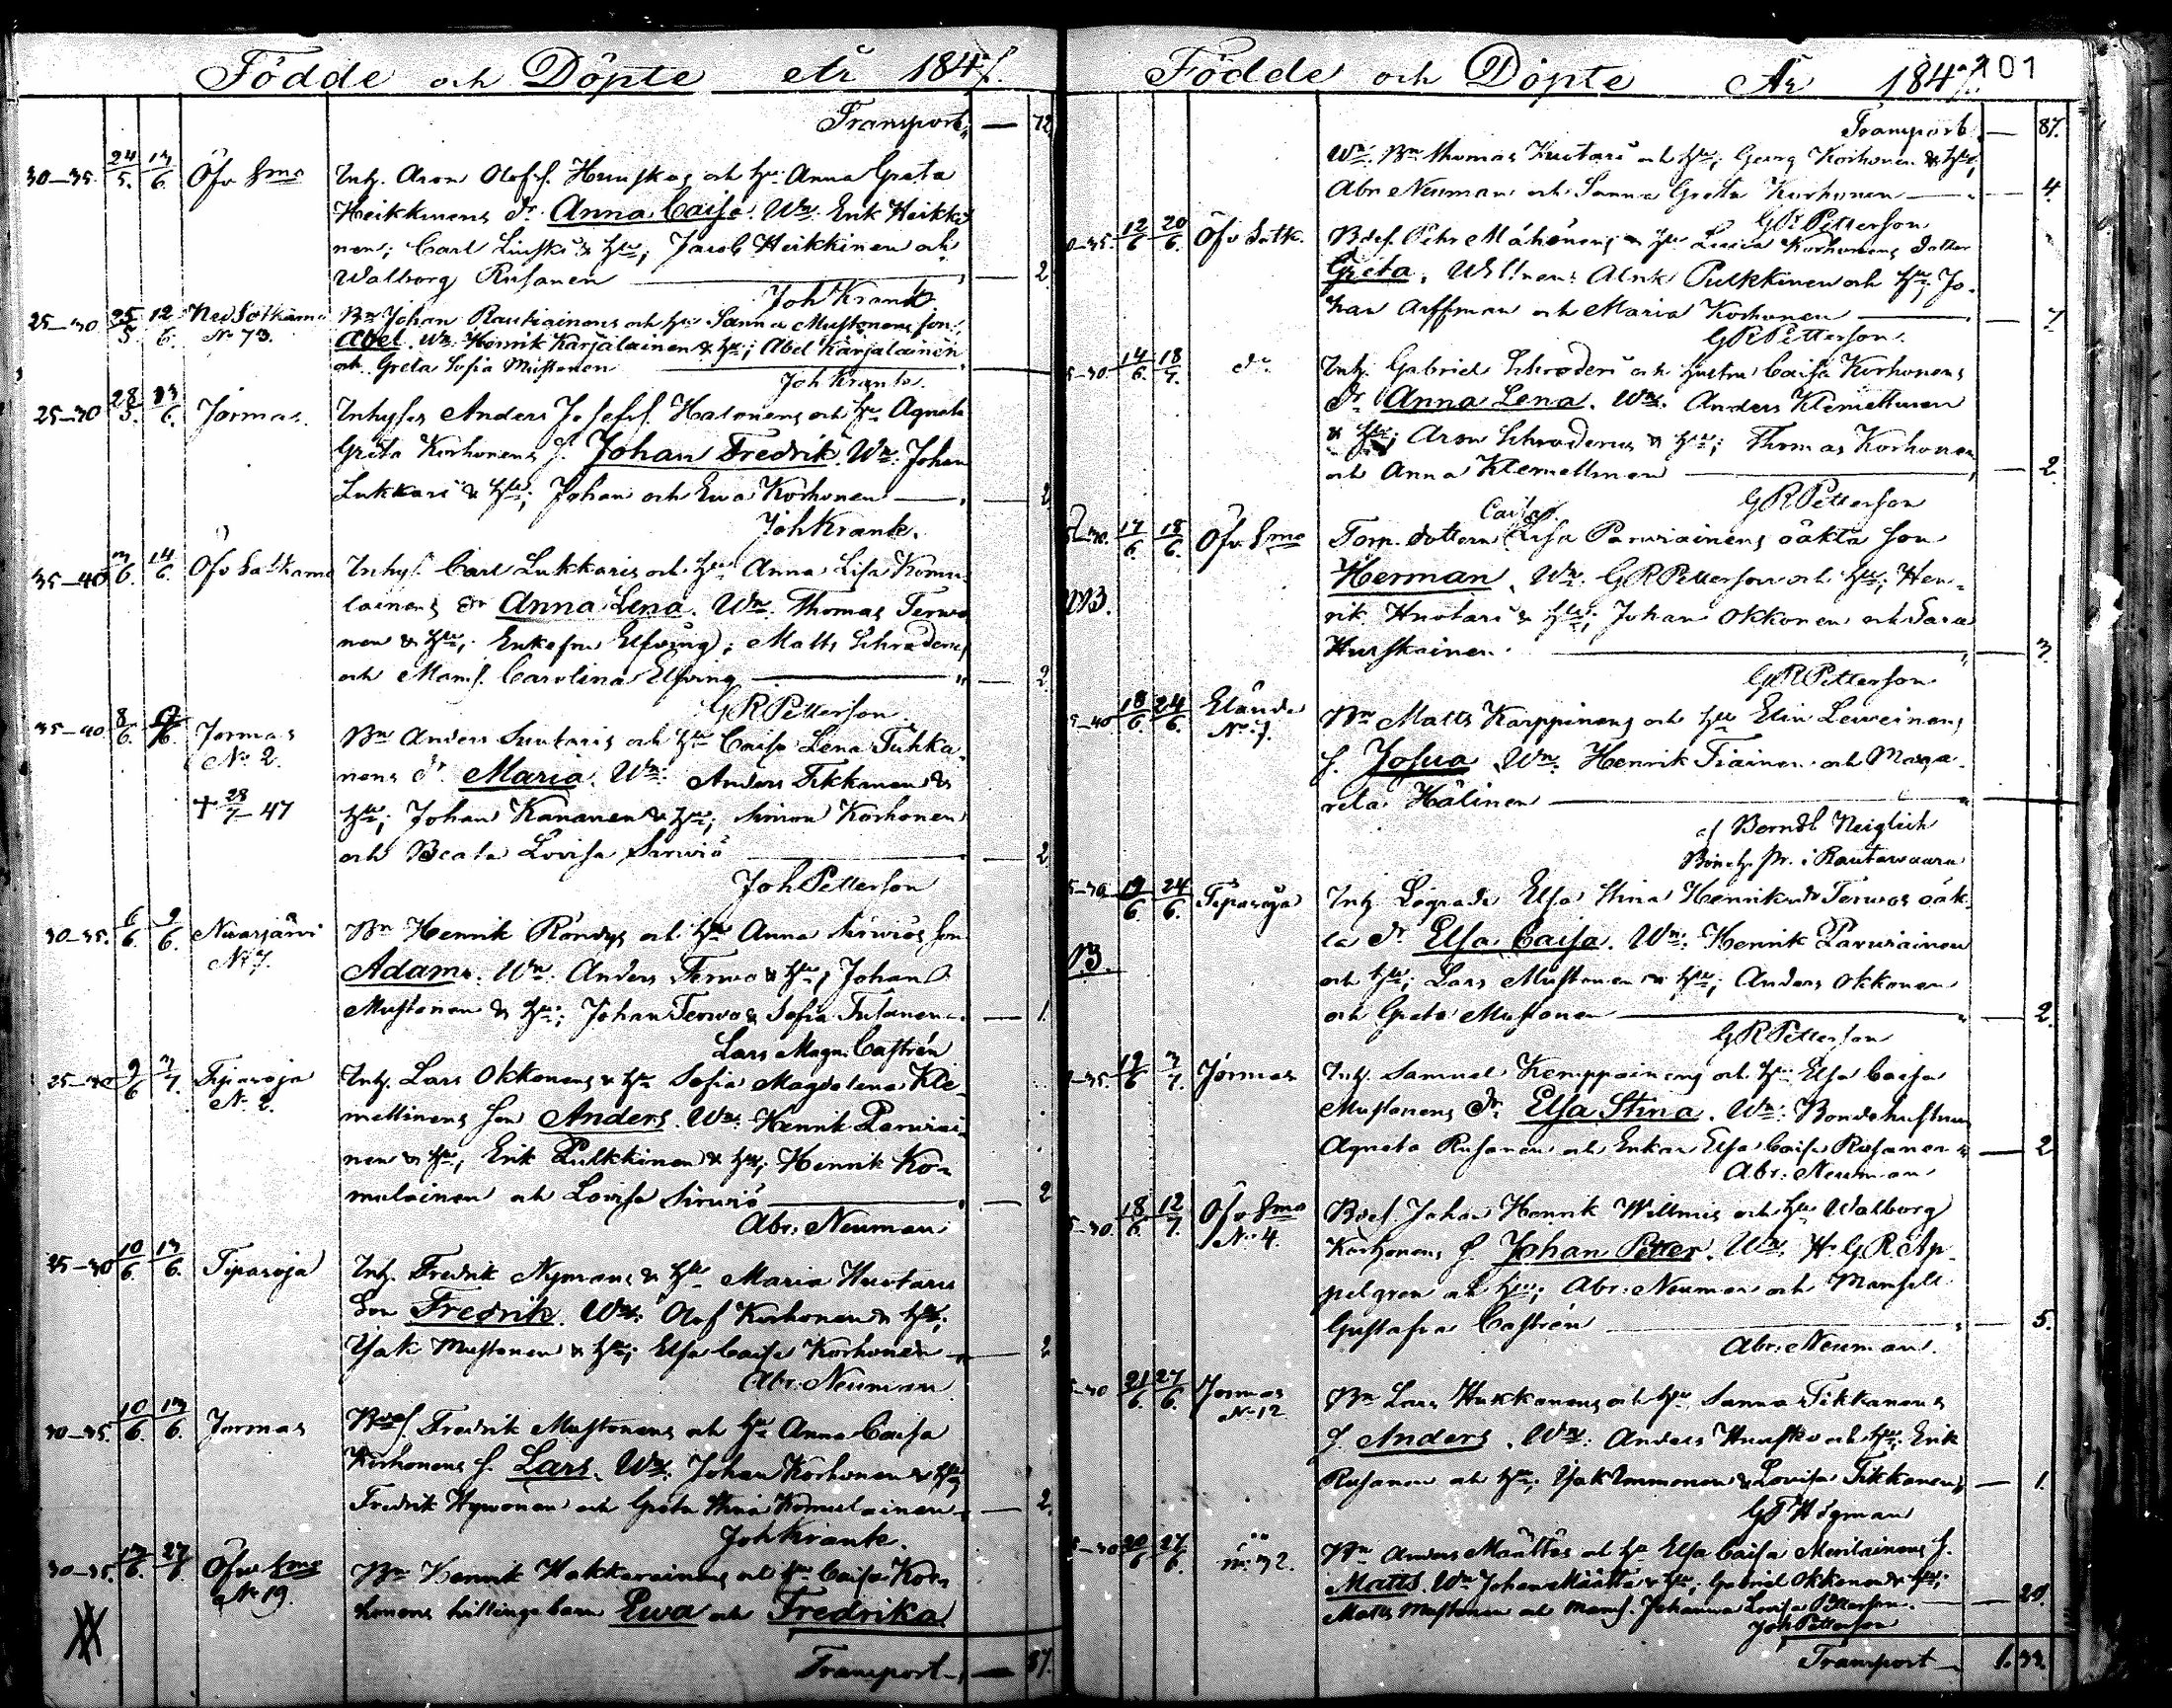 Födde och Döpte År 1847.
Transport 72
30-35. 24/5. 13/6. Öfv Smo Inh. Aron Olofs. Hurskas och hu Anna Greta
Heikkinens dr. Anna Caisa. Wn. Erik Heikki
nen; Carl & hu; Jacob Heikkinen och
Walborg Rusanen 2
Joh Krank
25-30 25/5 12/6. Ned Sotkamo No 73. Bn Johan Rautiainens och hu Sanna Mustonens son
Abel. Wn. Henrik Karjalainen & hu; Abel Karjalainen
och Greta Sofia Mustonen
Joh Krank.
25-30 28/5. 13/6. Jormas. Inhyses Anders Josefs. Halonens och hu Agneta
Greta Korhonens s. Johan Fredrik. Wn. Johan
Lukkari & hu; Johan och Ewa Korhonen 2
Joh Krank.
35-40 3/6. 14/6. Öfv Sotkamo Inhys. Carl Lukkaris och hu Anna Lisa Komu
lainens dr Anna Lena. Wn. Thomas Terwo
nen & hu; Enkefru Elfving; Matts Schroderus
och Mams. Carolina Elfving 2.
G R Petterson
35-40 8/6. Jormas No 2. Bn Anders Huotaris och hu Caisa Lena Tuhka
nens dr. Maria. Wn. Anders Tikkanen &
+ 28/7 - 47 hu; Johan Kananen & hu; Simon Korhonen
och Beata Lovisa Sirviö 2
Joh Petterson
30-35. 6/6. 9/6. Nuasjärvi No 7. Bn Henrik Röndys och hu Anna Sirviös son
Adam. Wn. Anders Terwo & hu; Johan
Mustonen & hu; Johan Terwo & Sofia Tulanen 1.
Lars Magn. Castrén
25-30 9/6 3/7. Tipasoja No 2. Inh. Lars Okkonens & hu Sofia Magdalena Kle
mettinens son Anders. Wn. Henrik Parviai
nen & hu; Erik Pulkkinen & hu; Henrik Ko-
mulainen och Lovisa Sirviö 2
Abr. Neuman
25-30 10/6. 13/6. Tipasoja Inh. Fredrik Nymans & hu Maria Huotaris
Son Fredrik. Wn. Olof Korhonen & hu;
Isak Mustonen & hu; Elsa Caisa Korhonen 2
Abr. Neuman
30-35. 10/6. 13/6. Jormas Bdes. Fredrik Mustonens och hu Anna Caisa
Korhonens s. Lars. Wn. Johan Korhonen & hu;
Fredrik Hyvönen och Greta Stina Komulainen 2.
Joh Krank.
30-35. 13/6. 27/6 Öfv Smo No 19. Bn Henrik Hakkarainens och hu Caisa Kor-
honens tvillingebarn Ewa och Fredrika
Transport 87.
Födde och Döpte År 1847.
101
Transport 87.
Wn. Bn Thomas Huotari och hu; Georg Korhonen & hu;
Abr Neuman och Sanna Greta Korhonen 4.
G R Petterson
12/6 20/6. Öfv Sotk. Bdes. Pehr Mähönens & hu Lovisa Korhonens dotter
Greta. Wittnen: Alrik Pulkkinen och hu; Jo-
han Arffman och Maria Korhonen 7
G R Petterson.
14/6. 18/7. do Inh. Gabriel Schroderi och hustru Caisa Korhonens
dr Anna Lena. Wn. Anders Klemettinen
& hu; Aron Schroderus & hu; Thomas Korhonen
och Anna Klemettinen 2.
G R Petterson
17/6. 18/6. Öfv Smo Torp. dottern Caisa Lisa Parviainens oäkta son
NB. Herman. Wn. G R Petterson och hu; Hen-
rik Huotari & hu; Johan Okkonen och Sara
Hurskainen. 3.
G R Petterson
18/6. 24/6. Eländs No 7. Bn Matts Karppinens och hu Elin Leweinens
s. Josua. Wn. Henrik Tiainen och Marga-
reta Hälinen
af Berndt Neiglick
Böneh. pr. i Rautawaara
19/6 24/6. Tipasoja Inh. Lögrade Elsa Stina Henriksdr Terwos oäk
NB. ta dr. Elsa Caisa. Wn. Henrik Parviainen
och hu; Lars Mustonen & hu; Anders Okkonen
och Greta Mustonen 2.
G R Petterson
19/6 3/7. Jormas Inh. Samuel Kemppainens och hu Elsa Caisa
Mustonens dr. Elsa Stina. Wn. Bondehustrun
Agneta Rusanen och Enkan Elsa Caisa Rusanen 2
Abr. Neuman
18/6. 12/7. Öfv Smo No 4. Bdes. Johan Henrik Willmis och hu Walborg
Korhonens s. Johan Petter. Wn. Hr G R Ap-
pelgren och hu; Abr. Neuman och Mamsell
Gustafva Castrén 5.
Abr. Neuman.
21/6. 27/6. Jormas No 12. Bn Lars Hukkanens och hu Sanna Tikkanens
s. Anders. Wn. Anders Hursko och hu; Erik
Rusanen och hu; Isak Immonen & Lovisa Tikkanen 1.
G F Högman
20/6 27/6. No 32. Bn Anders Määttäs och hu Elsa Caisa Meriläinens s.
Matts. Wn Johan Määttä & hu; Gabriel Okkonen & hu;
Matts Mustonen och Mams. Johanna Lovisa Petterson. 20.
Joh Petterson
Transport 1.33.